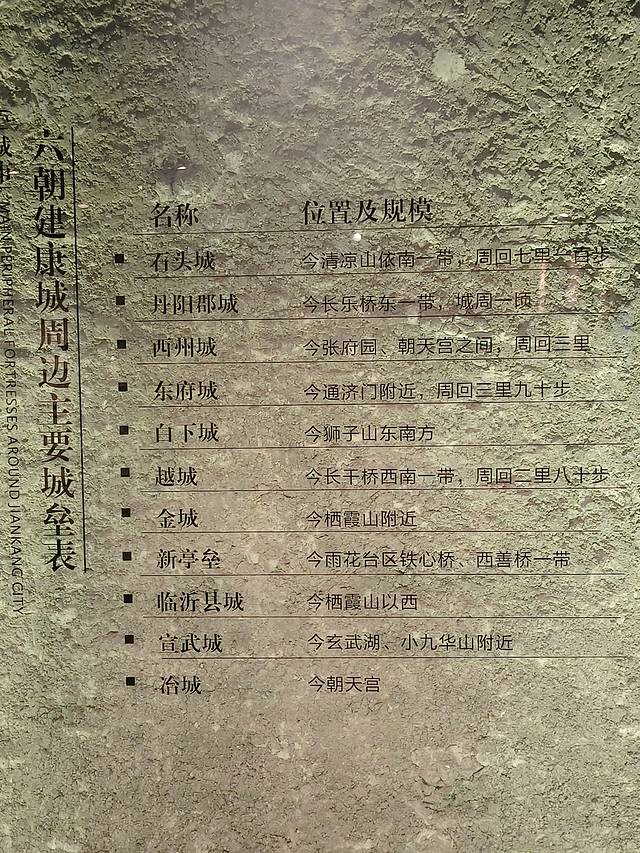 六朝建康城周边主要城垒表
PERIPHERAL FORTRESSES AROUND JIANKANG CITY
名称 位置及规模
石头城 今清凉山依南一带，周回七里一百步
丹阳郡城 今长乐桥东一带，城周一顷
西州城 今张府园、朝天宫之间，周回三里
东府城 今通济门附近，周回三里九十步
白下城 今狮子山东南方
越城 今长干桥西南一带，周回二里八十步
金城 今栖霞山附近
新亭垒 今雨花台区铁心桥、西善桥一带
临沂县城 今栖霞山以西
宣武城 今玄武湖、小九华山附近
冶城 今朝天宫